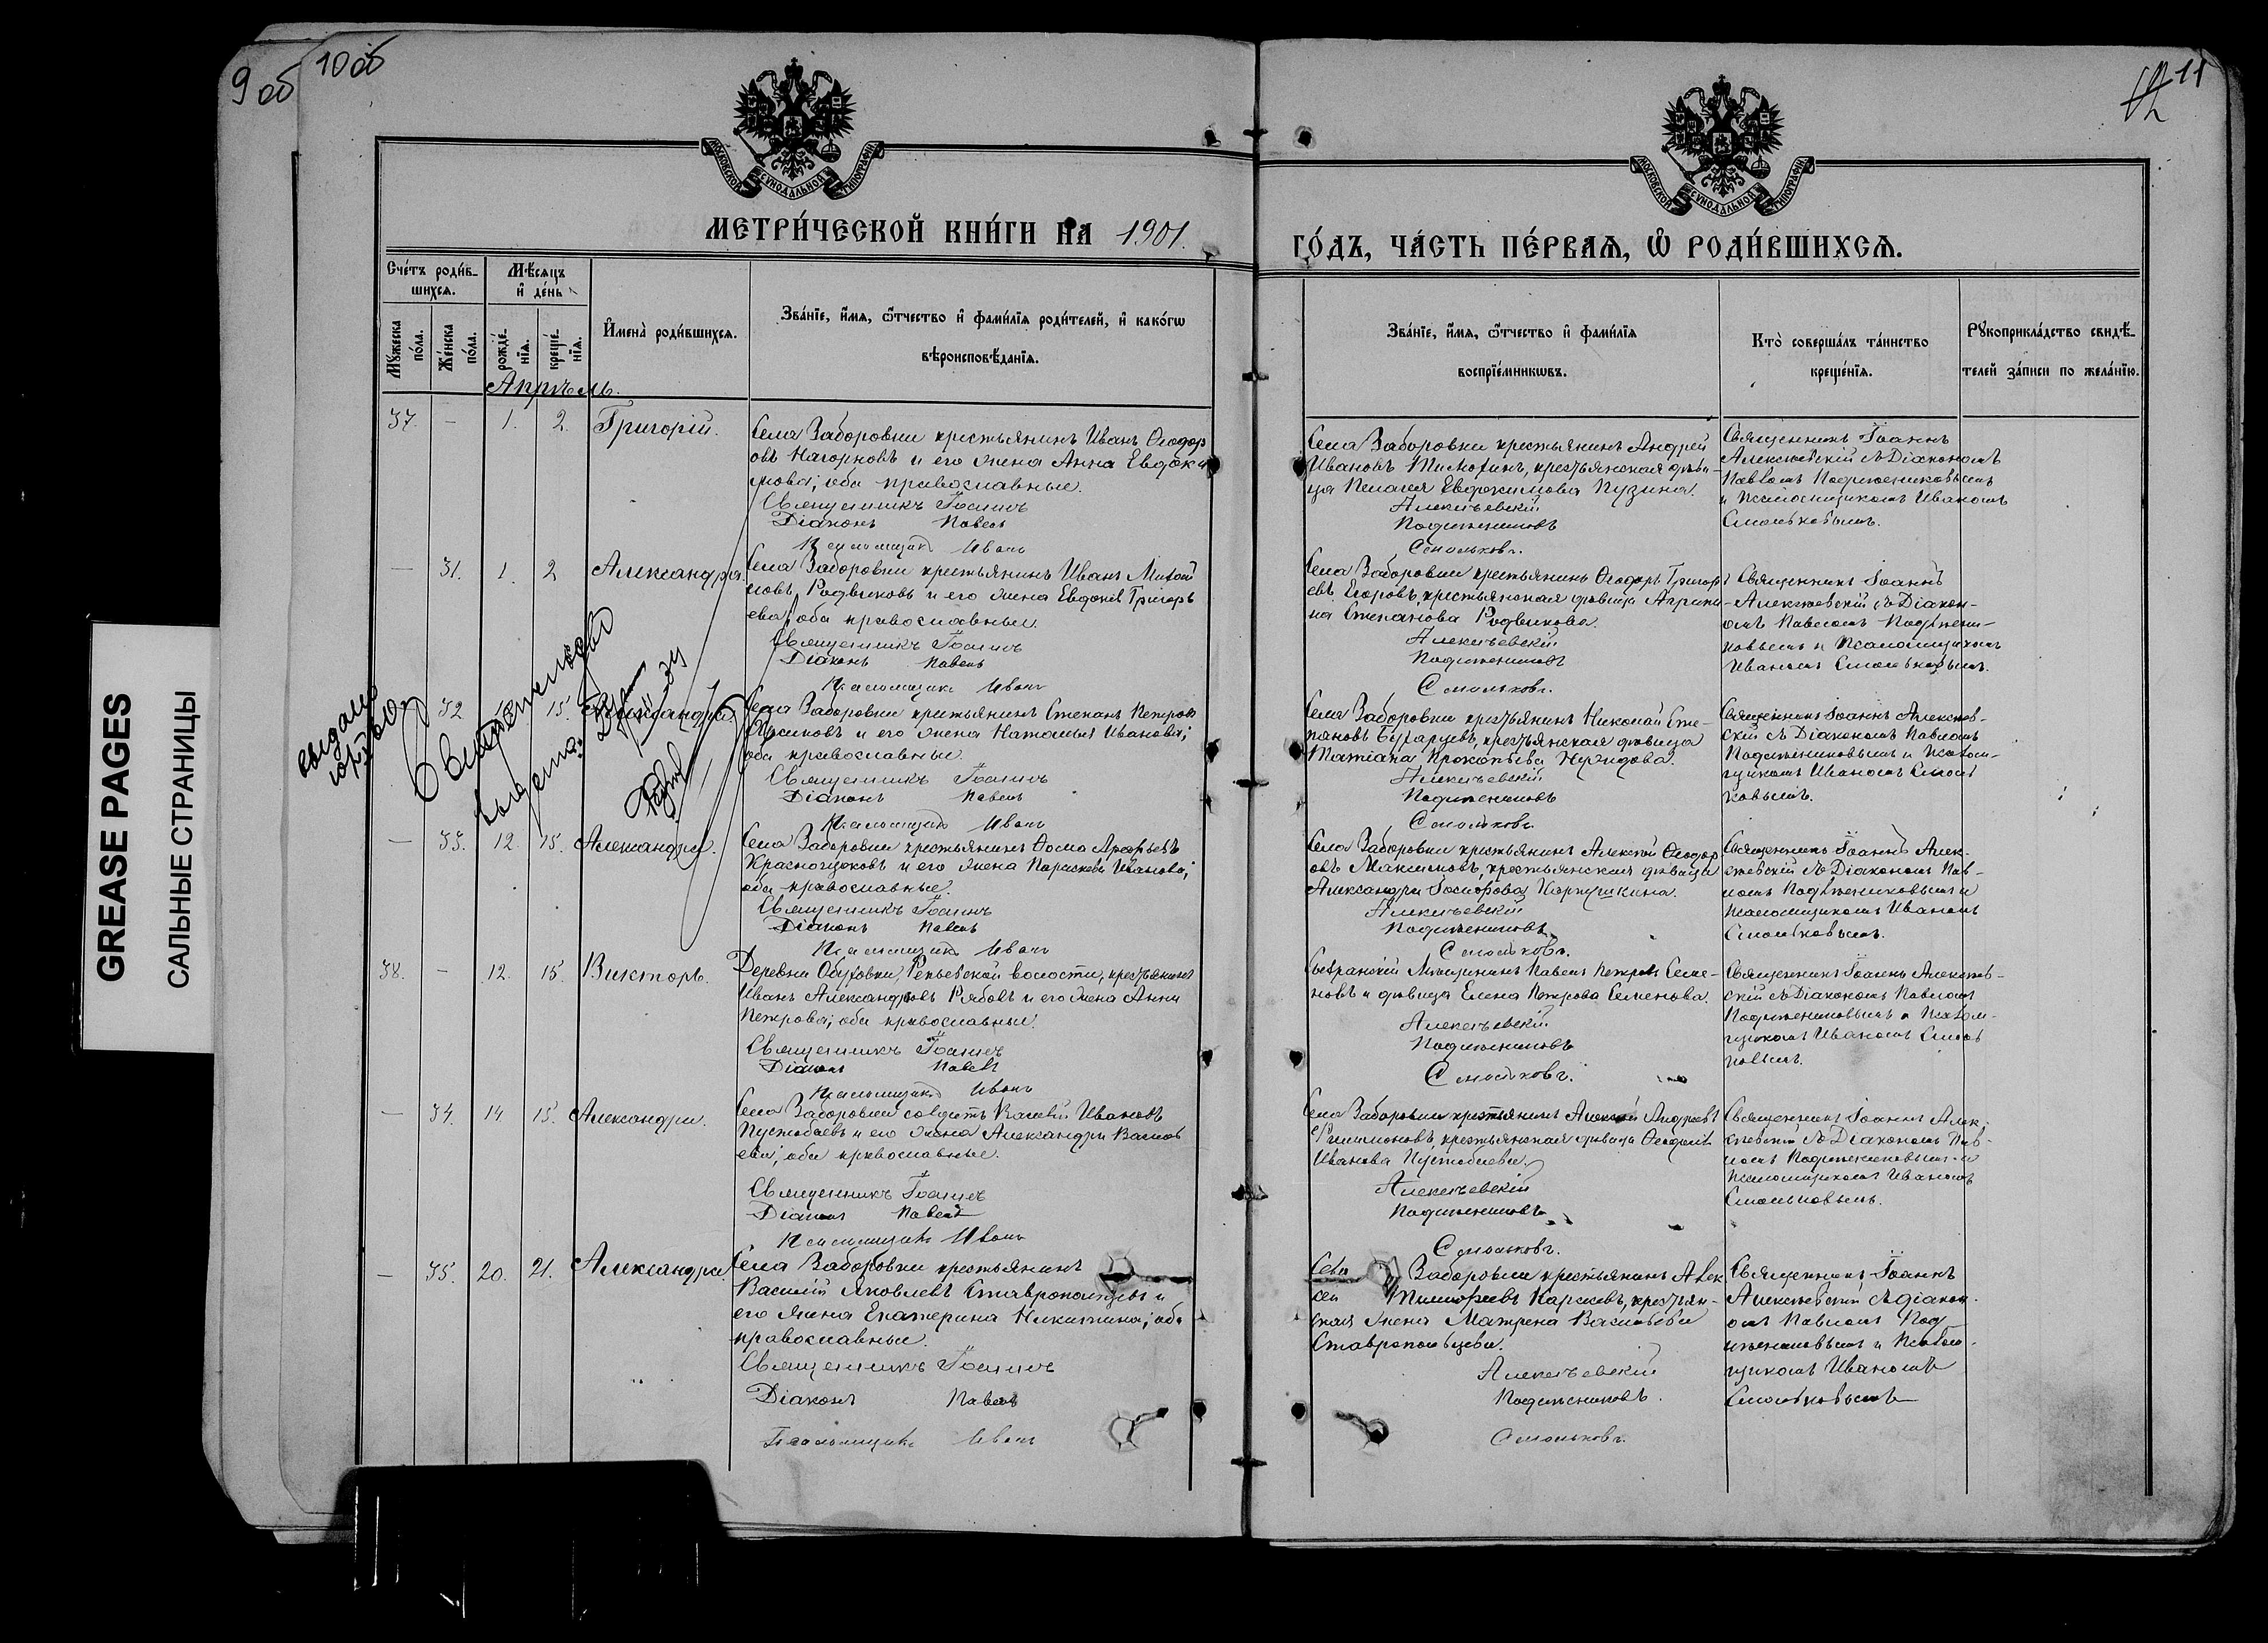 9 об
10 об
11
МОСКОВСКОЙ СУНОДАЛЬНОЙ ТИПОГРАФІИ
МОСКОВСКОЙ СУНОДАЛЬНОЙ ТИПОГРАФІИ
МЕТРИ́ЧЕСКОЙ КНИ́ГИ НА 1901.
ГО́ДЪ, ЧА́СТЬ ПЕ́РВАѦ, Ѡ҆ РОДИ́ВШИХСѦ.
Сче́тъ роди́в-
шихсѧ.
Мѣ́сѧцъ
и҆ де́нь
Мꙋжеска
по́ла.
Же́нска
по́ла.
рожде́-
нїѧ.
креще́-
нїѧ.
И҆мена̀ роди́вшихсѧ.
Зва́нїе, и҆́мѧ, ѻ҆́тчество и҆ фами́лїѧ роди́телей, и҆ како́гѡ
вѣроисповѣ́данїѧ.
Зва́нїе, и҆́мѧ, ѻ҆́тчество и҆ фами́лїѧ
воспрїе́мникѡвъ.
Кто̀ соверша́лъ та́инство
креще́нїѧ.
Рꙋкоприкла́дство свидѣ́-
телей за́писи по жела́нїю.
Апрѣль.
37. - 1. 2. Григорій.
Села Заборовки крестьянинъ Иванъ Ѳеодор
овъ Нагорновъ и его жена Анна Евдоки
мова; оба православные.
Священникъ Іоаннъ
Діаконъ Павелъ
Псаломщикъ Иванъ
Села Заборовки крестьянинъ Андрей
Ивановъ Тимохинъ, крестьянская дѣви-
ца Пелагея Евдокимова Пузина.
Алексѣевскій
Подъячениковъ
Смольковъ.
Священникъ Іоаннъ
Алексѣевскій съ Діакономъ
Павломъ
и Псаломщикомъ Иваномъ
Смольковымъ.
- 31. 1. 2 Александра.
Села Заборовки крестьянинъ Иванъ Михай
ловъ Родвиковъ и его жена Евдокія Григорь
ева; оба православные
Священникъ Іоаннъ
Діаконъ Павелъ
Псаломщикъ Иванъ
Села Заборовки крестьянинъ Ѳеодоръ Григорь
евъ Егоровъ, крестьянская дѣвица Агрипи
на Степанова Родвикова.
Алексѣевскій
Смольковъ.
Священникъ Іоаннъ
Алексѣевскій съ Діакон-
омъ Павломъ
и Псаломщикомъ
Иваномъ Смольковымъ.
32 15. Александра.
Села Заборовки крестьянинъ Степанъ Петров
и его жена Наталья Иванова;
оба православные.
Священникъ Іоаннъ
Діаконъ Павелъ
Псаломщикъ Иванъ
Села Заборовки крестьянинъ Николай Сте-
пановъ Бухарцевъ, крестьянская дѣвица
Татіана Прокопьева
Алексѣевскій
Смольковъ.
Священникъ Іоаннъ Алексѣев-
скій съ Діакономъ Павломъ
и Псалом-
щикомъ Иваномъ Смоль
ковымъ.
- 33. 12. 15. Александра.
Села Заборовки крестьянинъ Ѳома Арефьевъ
Краснощоковъ и его жена Параскева Иванова;
оба православные.
Священникъ Іоаннъ
Діаконъ Павелъ
Псаломщикъ Иванъ
Села Заборовки крестьянинъ Алексѣй Ѳеодор
овъ Максимовъ, крестьянская дѣвица
Александра
Алексѣевскій
Смольковъ.
Священникъ Іоаннъ Алек-
сѣевскій съ Діакономъ Пав-
ломъ
Псаломщикомъ Иваномъ
Смольковымъ.
38. - 12. 15. Викторъ.
Деревни Обуховки, Репьевской волости, крестьянинъ
Иванъ Александровъ Рябовъ и его жена Анна
Петрова; оба православные.
Священникъ Іоаннъ
Діаконъ Павелъ
Псаломщикъ Иванъ
Сызранскій Мѣщанинъ Павелъ Петровъ Семе-
новъ и дѣвица Елена Петрова Семенова.
Алексѣевскій
Смольковъ.
Священникъ Іоаннъ Алексѣев-
скій съ Діакономъ Павломъ
и Псалом-
щикомъ Иваномъ Смоль
ковымъ.
- 34. 14. 15. Александра.
Села Заборовки солдатъ Василій Ивановъ
Пустобаевъ и его жена Александра Василь
ева; оба православные.
Священникъ Іоаннъ
Діаконъ Павелъ
Псаломщикъ Иванъ
Села Заборовки крестьянинъ Алексѣй Андреевъ
крестьянская дѣвица
Иванова Пустобаева.
Алексѣевскій
Смольковъ.
Священникъ Іоаннъ Алек-
сѣевскій съ Діакономъ Пав-
ломъ
Псаломщикомъ Иваномъ
Смольковымъ.
- 35. 20. 21. Александра.
Села Заборовки крестьянинъ
Василій Яковлевъ Ставропольцевъ и
его жена Екатерина Никитина; оба
православные.
Священникъ Іоаннъ
Діаконъ Павелъ
Псаломщикъ Иванъ
Села Заборовки крестьянинъ Алек
сѣй Тимофеевъ Карсаевъ, крестьян-
ская жена Матрена Васильева
Ставропольцева.
Алексѣевскій
Смольковъ.
Священникъ Іоаннъ
Алексѣевскій съ діакон-
омъ Павломъ
и Псалом-
щикомъ Иваномъ
Смольковымъ
выдано
Свидетельство
GREASE PAGES
САЛЬНЫЕ СТРАНИЦЫ